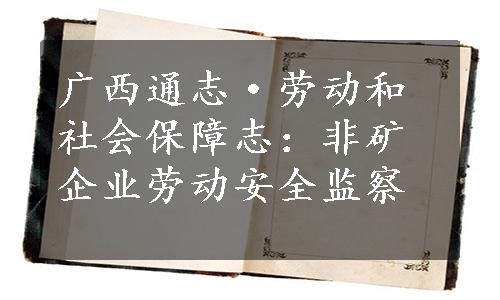 广西通志·劳动和
社会保障志：非矿
企业劳动安全监察